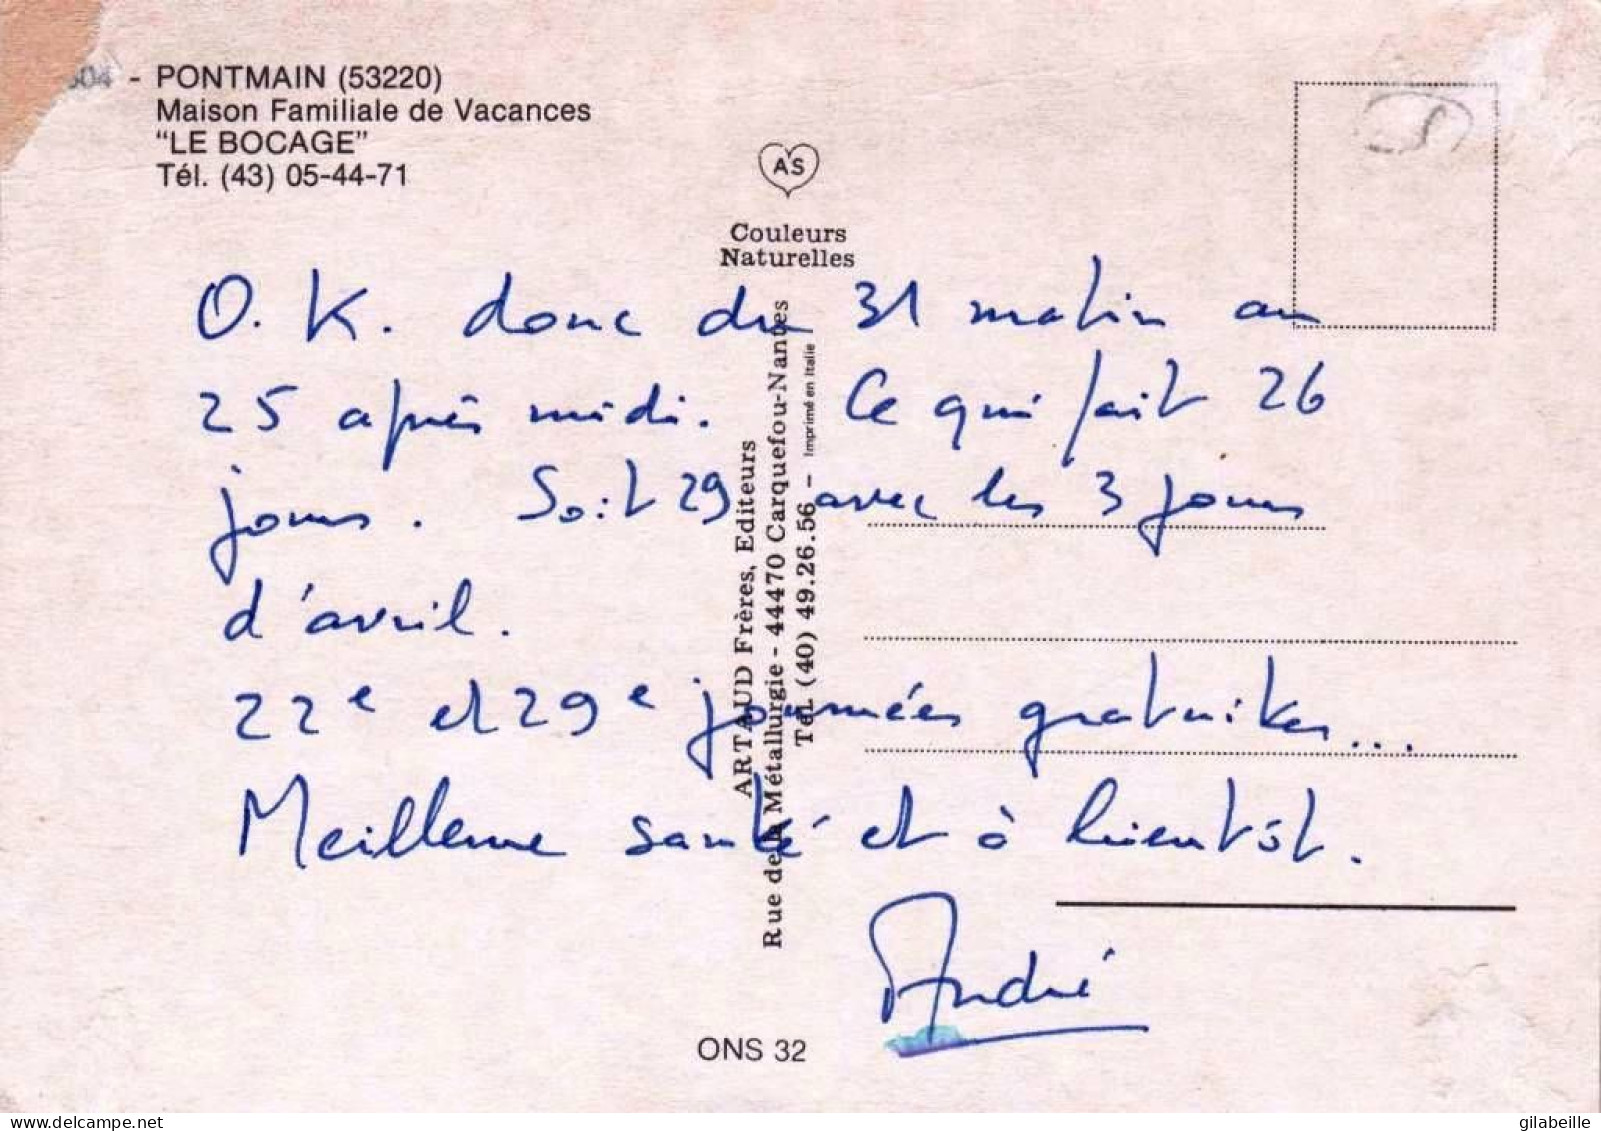 504 - PONTMAIN (53220)
Maison Familiale de Vacances
"LE BOCAGE"
Tél. (43) 05-44-71
AS
Couleurs
Naturelles
O.K. donc du 31 matin au
25 après midi. Ce qui fait 26
jours. Soit 29 avec les 3 jours
d'avril.
22e et 29e journées gratuites...
Meilleure santé et à bientôt.
André
ARTAUD Frères, Editeurs
Rue de la Métallurgie - 44470 Carquefou-Nantes
Tél. (40) 49.26.56 - Imprimé en Italie
ONS 32
gilabeille